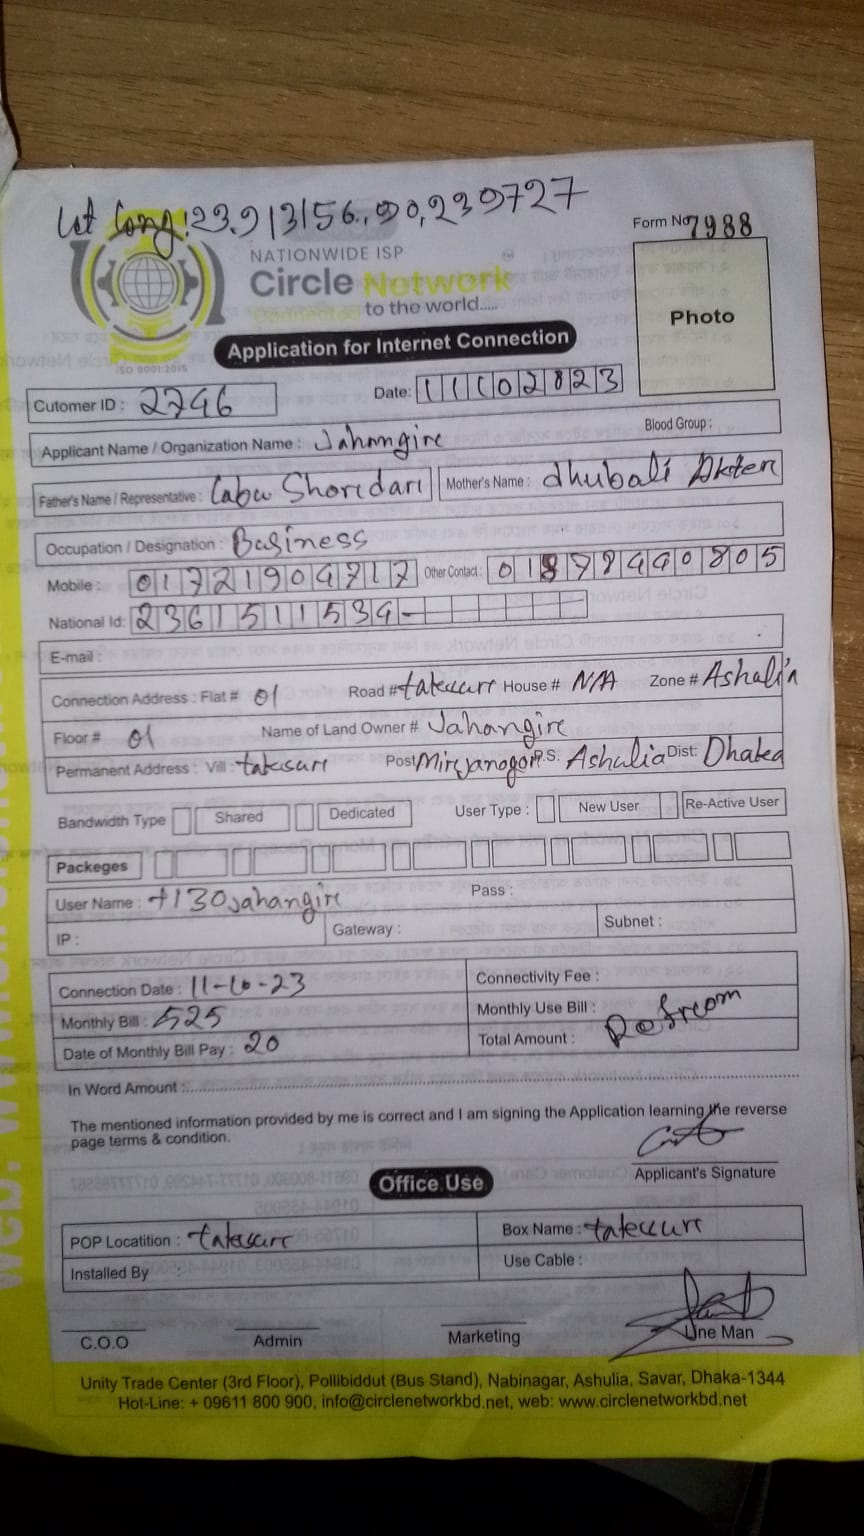 Lat Long: 23.913156., 90,239727
Form No 7988
NATIONWIDE ISP
Circle Network
Connected to the world.....
Photo
ISO 9001:2015
Application for Internet Connection
Cutomer ID : 2746
Date: 11102023
Applicant Name / Organization Name : Jahangire
Blood Group :
Father's Name / Representative : Labu Shoredari Mother's Name : dhubali Akter
Occupation / Designation : Business
Mobile : 01721904717 Other Contact : 01878440805
National Id: 2361511534-
E-mail :
Connection Address : Flat # 01 Road # House # N/A Zone # Ashalia
Floor # 01 Name of Land Owner # Jahangire
Permanent Address : Vill : Post P.S: Ashalia Dist: Dhaka
Bandwidth Type Shared Dedicated User Type : New User Re-Active User
Packeges
User Name : +130jahangire Pass :
IP : Gateway : Subnet :
Connection Date : 11-10-23 Connectivity Fee :
Monthly Bill : 525 Monthly Use Bill :
Date of Monthly Bill Pay : 20 Total Amount :
In Word Amount :
The mentioned information provided by me is correct and I am signing the Application learning the reverse
page terms & condition.
Applicant's Signature
Office Use
POP Locatition : Box Name :
Installed By : Use Cable :
C.O.O Admin Marketing Line Man
Unity Trade Center (3rd Floor), Pollibiddut (Bus Stand), Nabinagar, Ashulia, Savar, Dhaka-1344
Hot-Line: + 09611 800 900, info@circlenetworkbd.net, web: www.circlenetworkbd.net